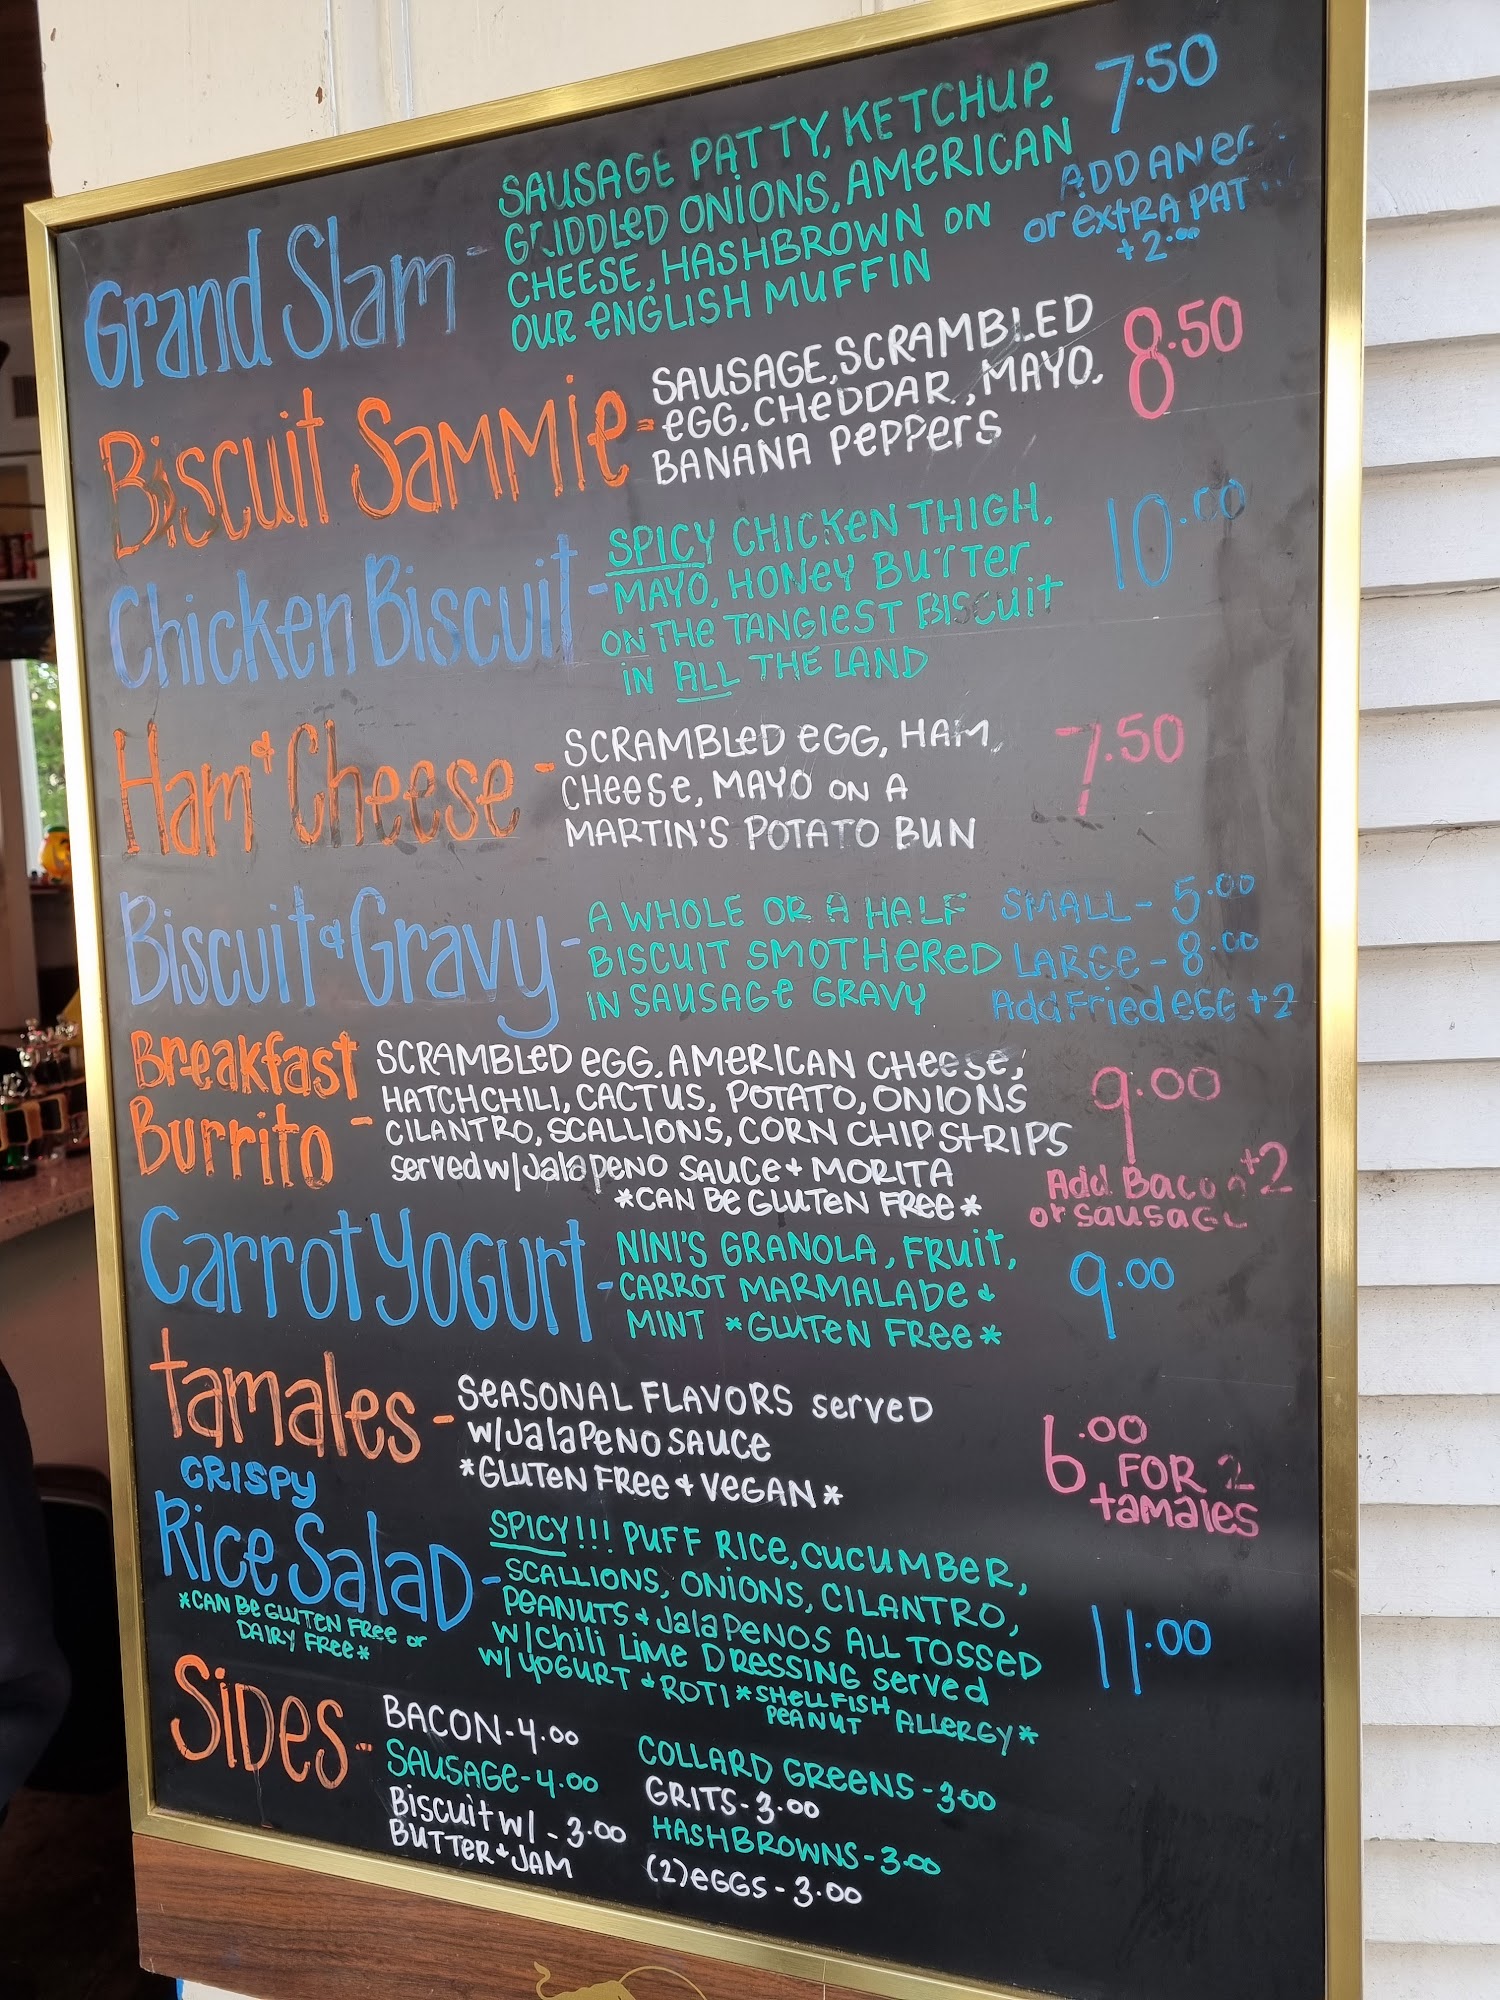 Grand Slam -
SAUSAGE PATTY, KETCHUP,
GRIDDLED ONIONS, AMERICAN
CHEESE, HASHBROWN ON
OUR ENGLISH MUFFIN
7.50
ADD AN
or extra
+2.00
Biscuit Sammie -
SAUSAGE, SCRAMBLED
egg, CHEDDAR, MAYO,
BANANA PEPPERS
8.50
Chicken Biscuit -
SPICY CHICKEN THIGH,
MAYO, HONEY BUTTER
ON THE TANGIEST BISCUIT
IN ALL THE LAND
10.00
Ham & Cheese -
SCRAMBLED EGG, HAM,
CHEESE, MAYO ON A
MARTIN'S POTATO BUN
7.50
Biscuit & Gravy -
A WHOLE OR A HALF
BISCUIT SMOTHERED
IN SAUSAGE GRAVY
SMALL - 5.00
LARGE - 8.00
Add Fried egg +2
Breakfast
Burrito -
SCRAMBLED EGG, AMERICAN CHEESE,
HATCH CHILI, CACTUS, POTATO, ONIONS
CILANTRO, SCALLIONS, CORN CHIP STRIPS
served w/ Jalapeno SAUCE & MORITA
*CAN BE GLUTEN FREE*
9.00
Add Bacon +2
or sausage
Carrot Yogurt -
NINI'S GRANOLA, FRUIT,
CARROT MARMALADE &
MINT *GLUTEN FREE*
9.00
tamales -
SEASONAL FLAVORS served
w/ Jalapeno SAUCE
*GLUTEN FREE & VEGAN*
6.00
FOR 2
tamales
CRISPY
Rice Salad -
*CAN BE GLUTEN FREE or
DAIRY FREE*
SPICY!!! PUFF RICE, CUCUMBER,
SCALLIONS, ONIONS, CILANTRO,
PEANUTS & JalaPENOS ALL TOSSED
w/ Chili LIME DRESSING served
w/ YOGURT & ROTI *SHELLFISH
PEANUT ALLERGY*
11.00
Sides -
BACON - 4.00
SAUSAGE - 4.00
Biscuit w/ - 3.00
BUTTER & JAM
COLLARD GREENS - 3.00
GRITS - 3.00
HASHBROWNS - 3.00
(2) eggs - 3.00